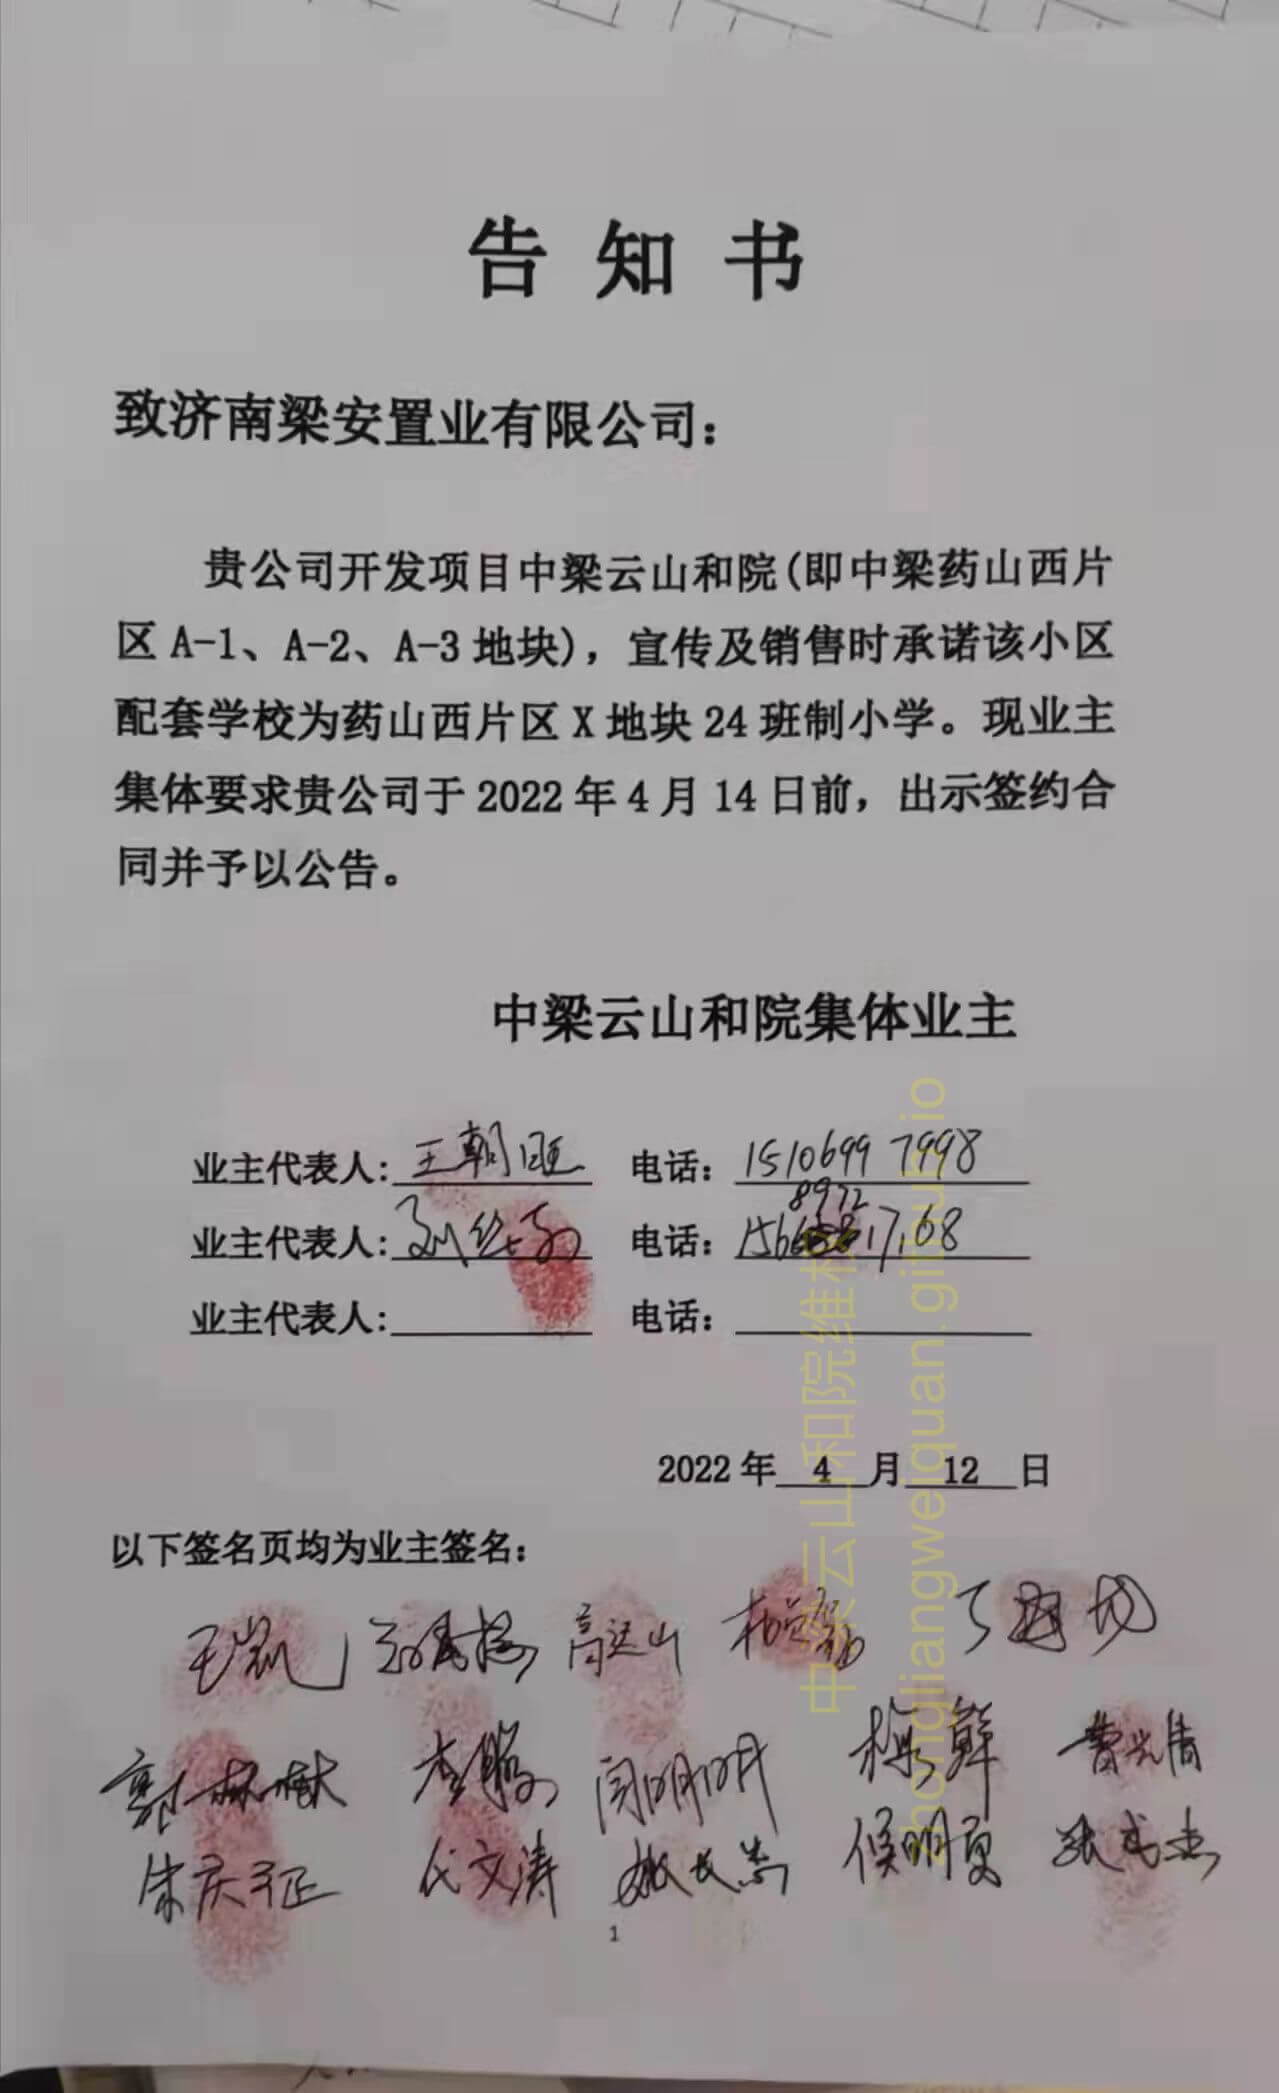 告知书
致济南梁安置业有限公司：
贵公司开发项目中梁云山和院(即中梁药山西片
区 A-1、A-2、A-3 地块)，宣传及销售时承诺该小区
配套学校为药山西片区 X 地块 24 班制小学。现业主
集体要求贵公司于 2022 年 4 月 14 日前，出示签约合
同并予以公告。
中梁云山和院集体业主
业主代表人：王朝旺 电话：15106997998
8972
业主代表人：刘 电话：
业主代表人： 电话：
2022 年 4 月 12 日
以下签名页均为业主签名：
王凯 高运山
闫明明 梅鲜
代文涛
1
中梁云山和院维权
zhongliangweiquan.github.io